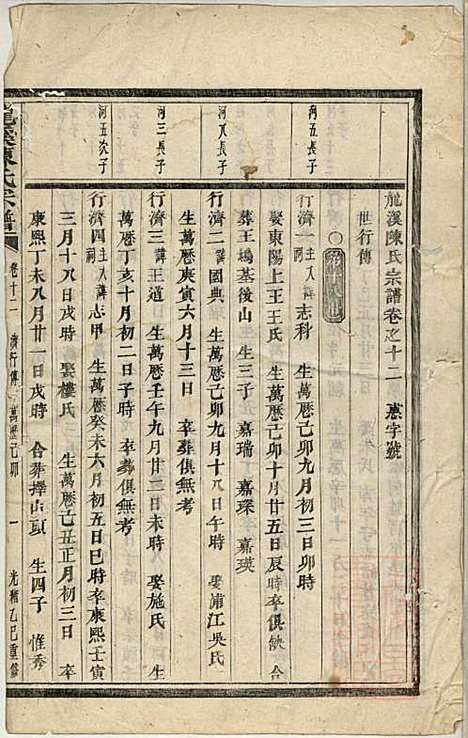 龍溪陳氏宗譜卷之十二　悳字號
世行傳
河五長子
行濟一　主入祠　諱志科　生萬歷己卯九月初三日卯時
娶東陽上王王氏　生萬歷己卯十月廿五日辰時卒俱缺　合
葬王塢基後山　生三子　嘉瑞　嘉琛　嘉瑛
河八長子
行濟二　諱國典　生萬歷己卯九月十八日午時　娶浦江吳氏
生萬歷庚寅六月十三日　卒葬俱無考
河三長子
行濟三　諱王道　生萬歷壬午九月廿三日未時　娶施氏
萬歷丁亥十月初二日子時　卒葬俱無考
河五次子
行濟四　主入祠　諱志甲　生萬歷癸未六月初五日巳時卒康熙壬寅
三月十八日戌時　娶樓氏　生萬歷己丑正月初三日　卒
康熙丁未八月廿一日戌時　合葬擇山頭　生四子　惟秀
龍溪陳氏宗譜　卷十二　濟行傳　萬歷己卯　一　光緒乙巳重修